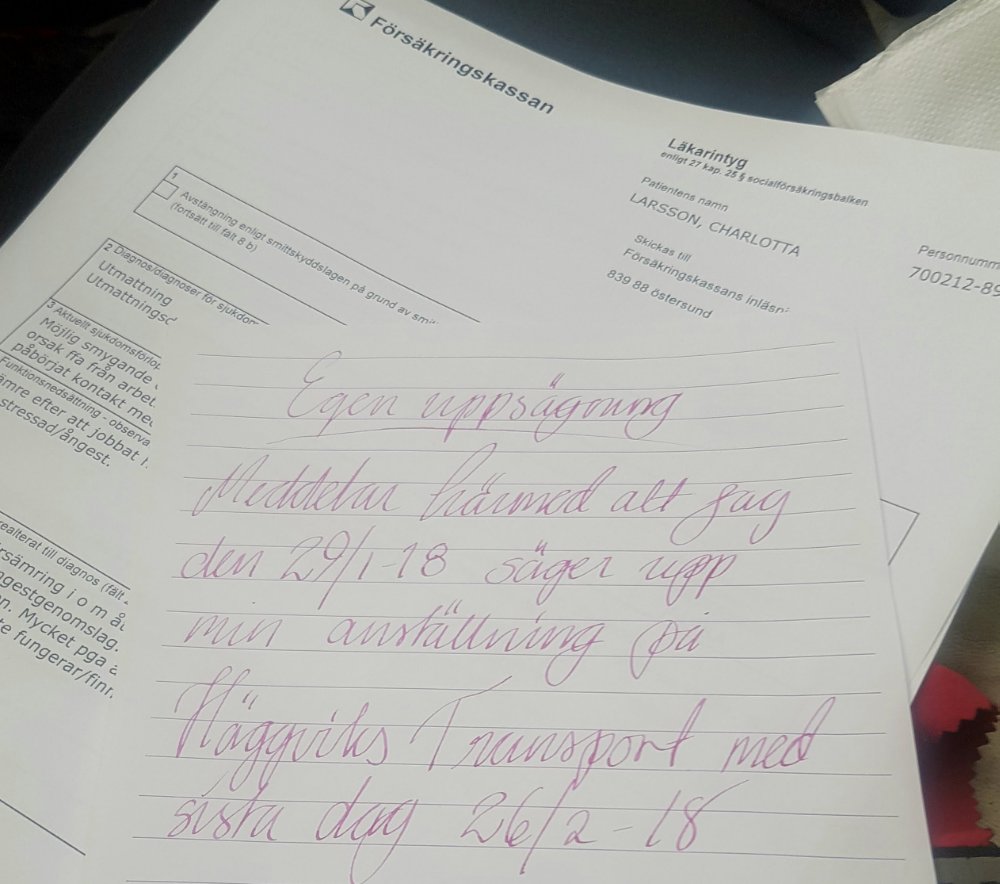 Försäkringskassan
Läkarintyg
enligt 27 kap. 25 § socialförsäkringsbalken
Patientens namn
LARSSON, CHARLOTTA
Personnumm
700212-89
Skickas till
Försäkringskassans inläsn
839 88 östersund
1
Avstängning enligt smittskyddslagen på grund av
(fortsätt till fält 8 b)
2 Diagnos/diagnoser för
Utmattning
3 Aktuellt
Möjlig smygande
orsak ffa från
påbörjat kontakt
Funktionsnedsättning -
efter att jobbat
stressad/ångest.
till diagnos (fält
i o m
Mycket pga
Egen uppsägning
Meddelar härmed att jag
den 29/1-18 säger upp
min anställning på
Häggviks Transport med
sista dag 26/2-18